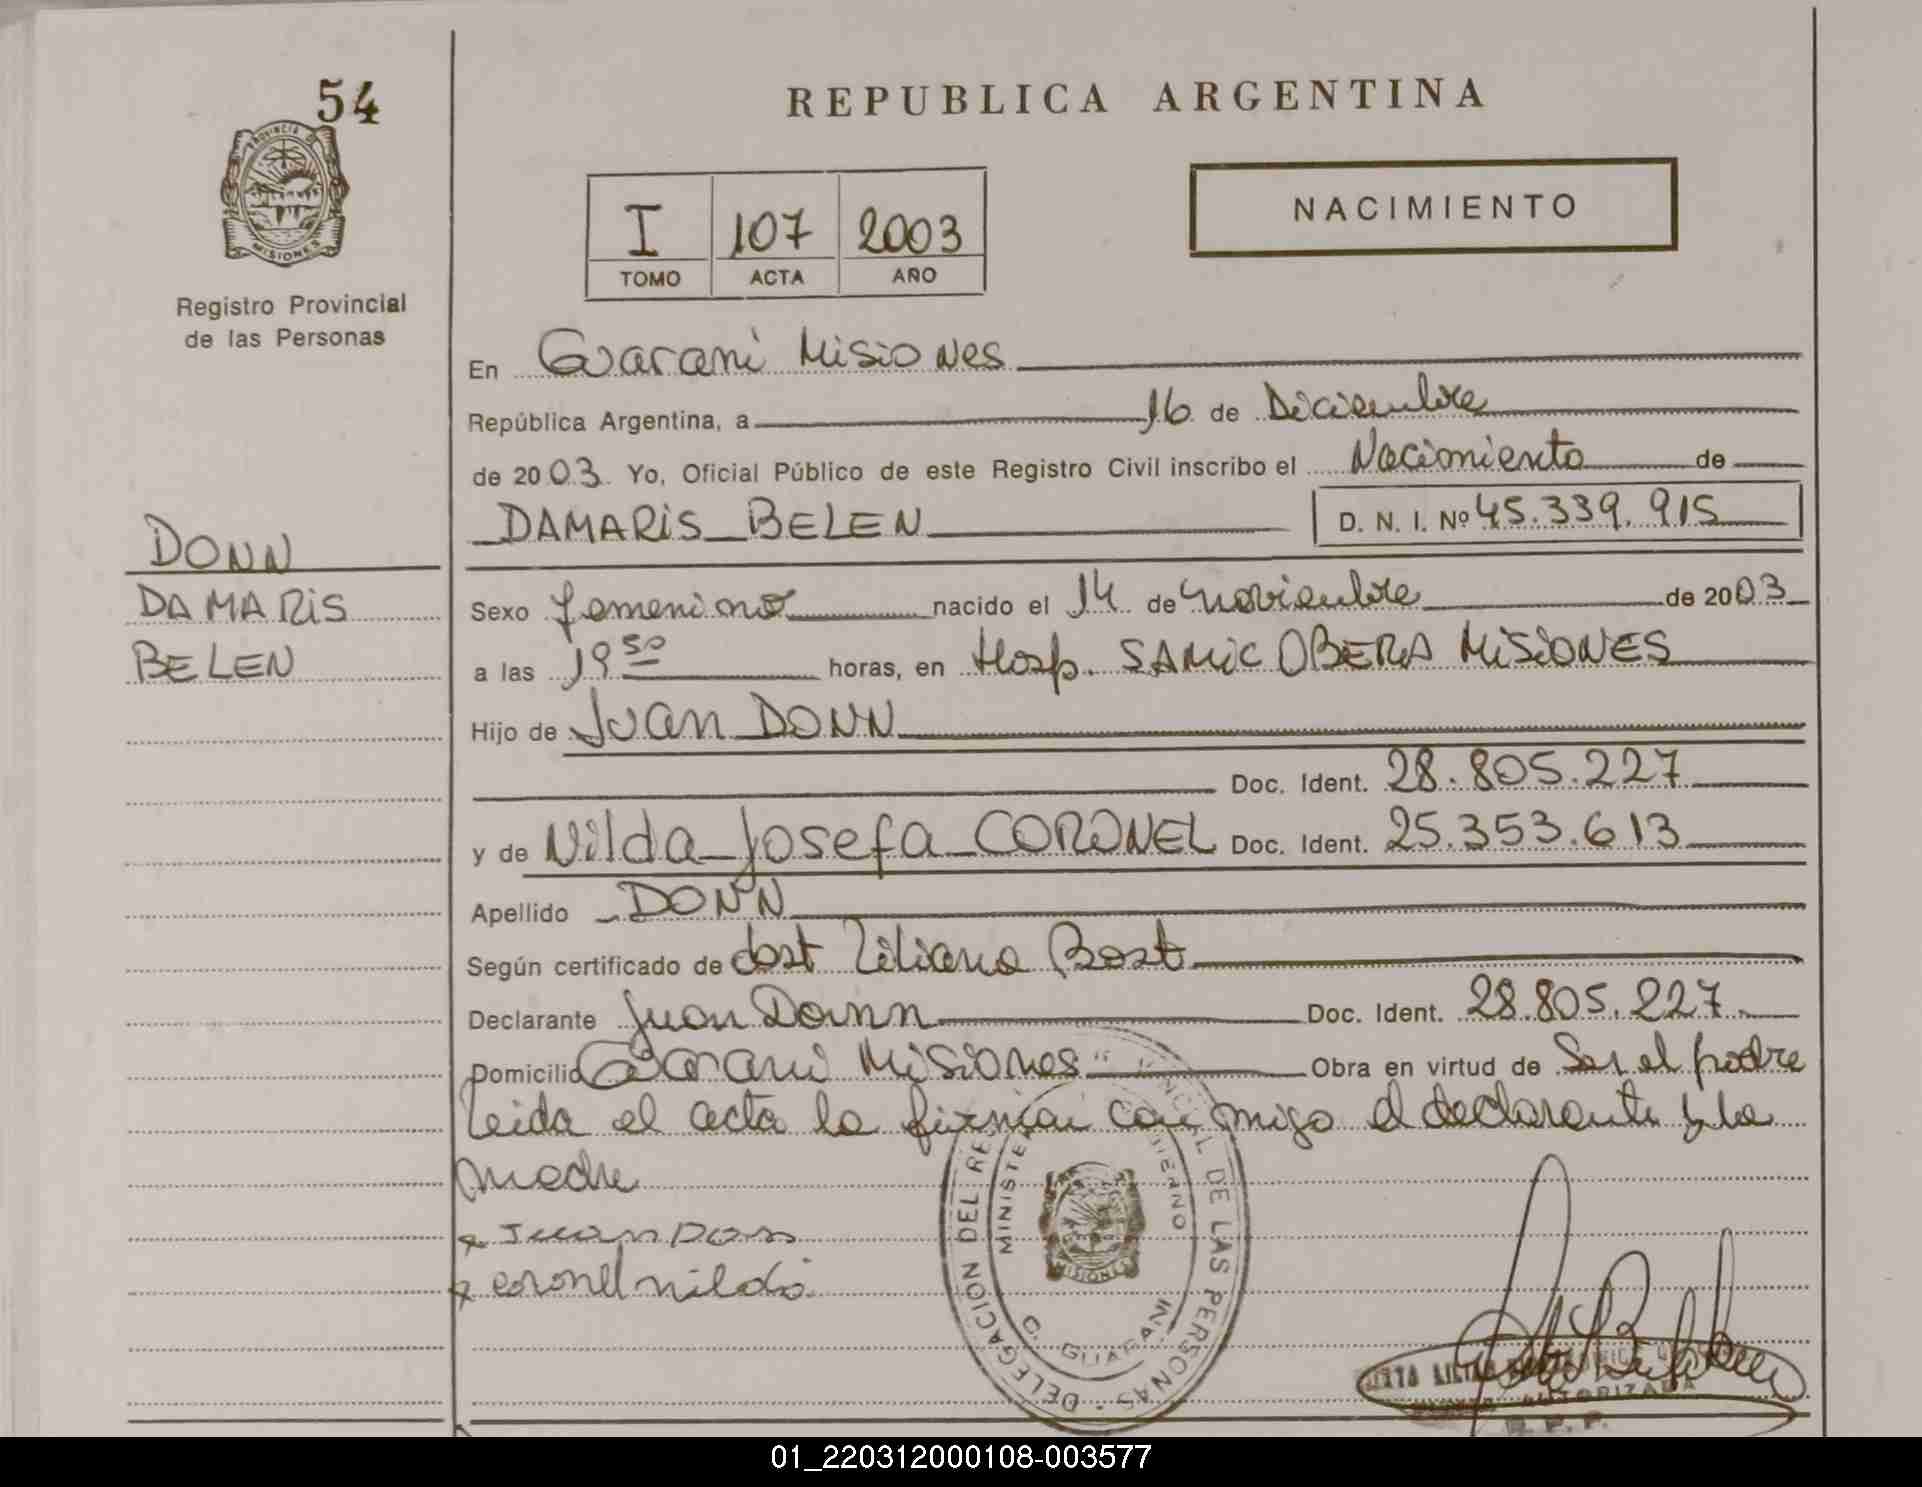 54
PROVINCIA DE
MISIONES
Registro Provincial
de las Personas
REPUBLICA ARGENTINA
I 107 2003
TOMO ACTA AÑO
NACIMIENTO
En Guarani Misiones
República Argentina, a 16 de Diciembre
de 2003 Yo, Oficial Público de este Registro Civil inscribo el Nacimiento de
DAMARIS BELEN D. N. I. Nº 45.339.915
DONN
DAMARIS
BELEN
Sexo femenino nacido el 14 de noviembre de 2003
a las 19 50 horas, en Hosp. SAMIC OBERA MISIONES
Hijo de Juan DONN
Doc. Ident. 28.805.227
y de Nilda Josefa CORONEL Doc. Ident. 25.353.613
Apellido DONN
Según certificado de obst Liliana Bost
Declarante Juan Donn Doc. Ident. 28.805.227
Domicilio Guarani Misiones Obra en virtud de Ser el padre
Leida el acta la firman con migo el declarante y la
madre
x Juan Don
x coronel nilda
DELEGACION DEL DE LAS PERSONAS
C. GUARANI
MISIONES
AUTORIZADA
R. P. P.
01_220312000108-003577